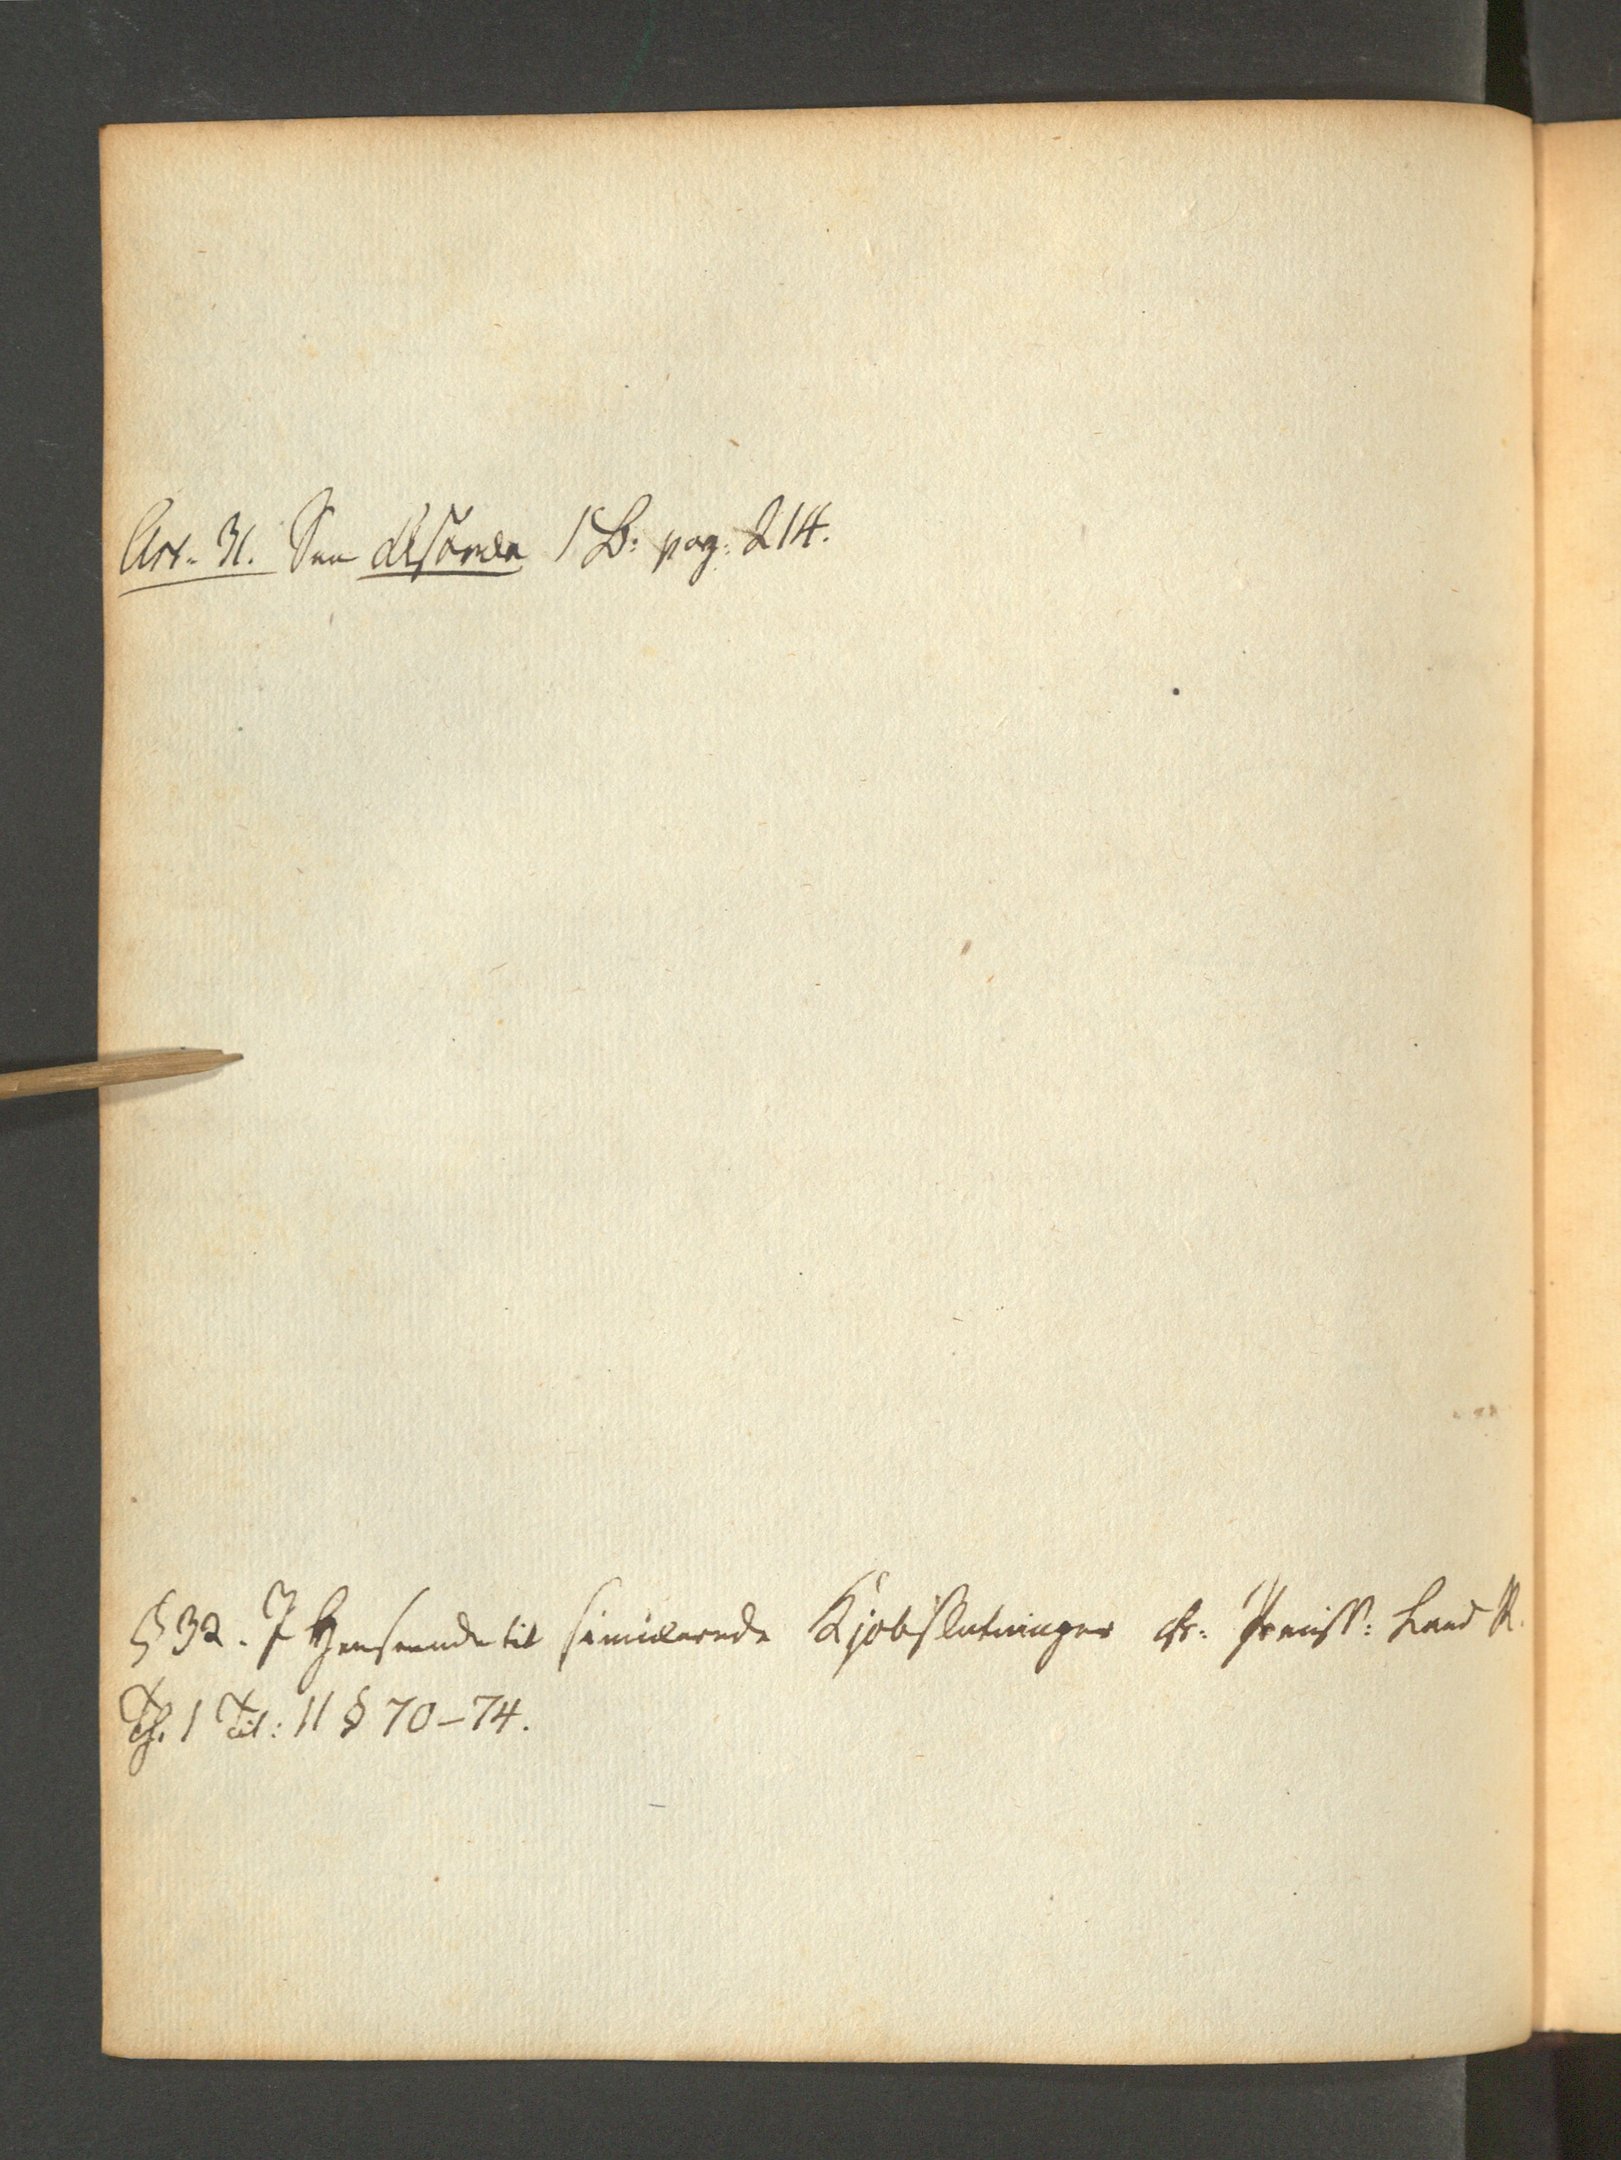 Art. 31. See Alsorda 1 B: pag: 214.
§ 32. I Henseende til simulerede Kjobslutninger cfr: Preuss: Land R.
Th. 1 Tit: 11 § 70-74.